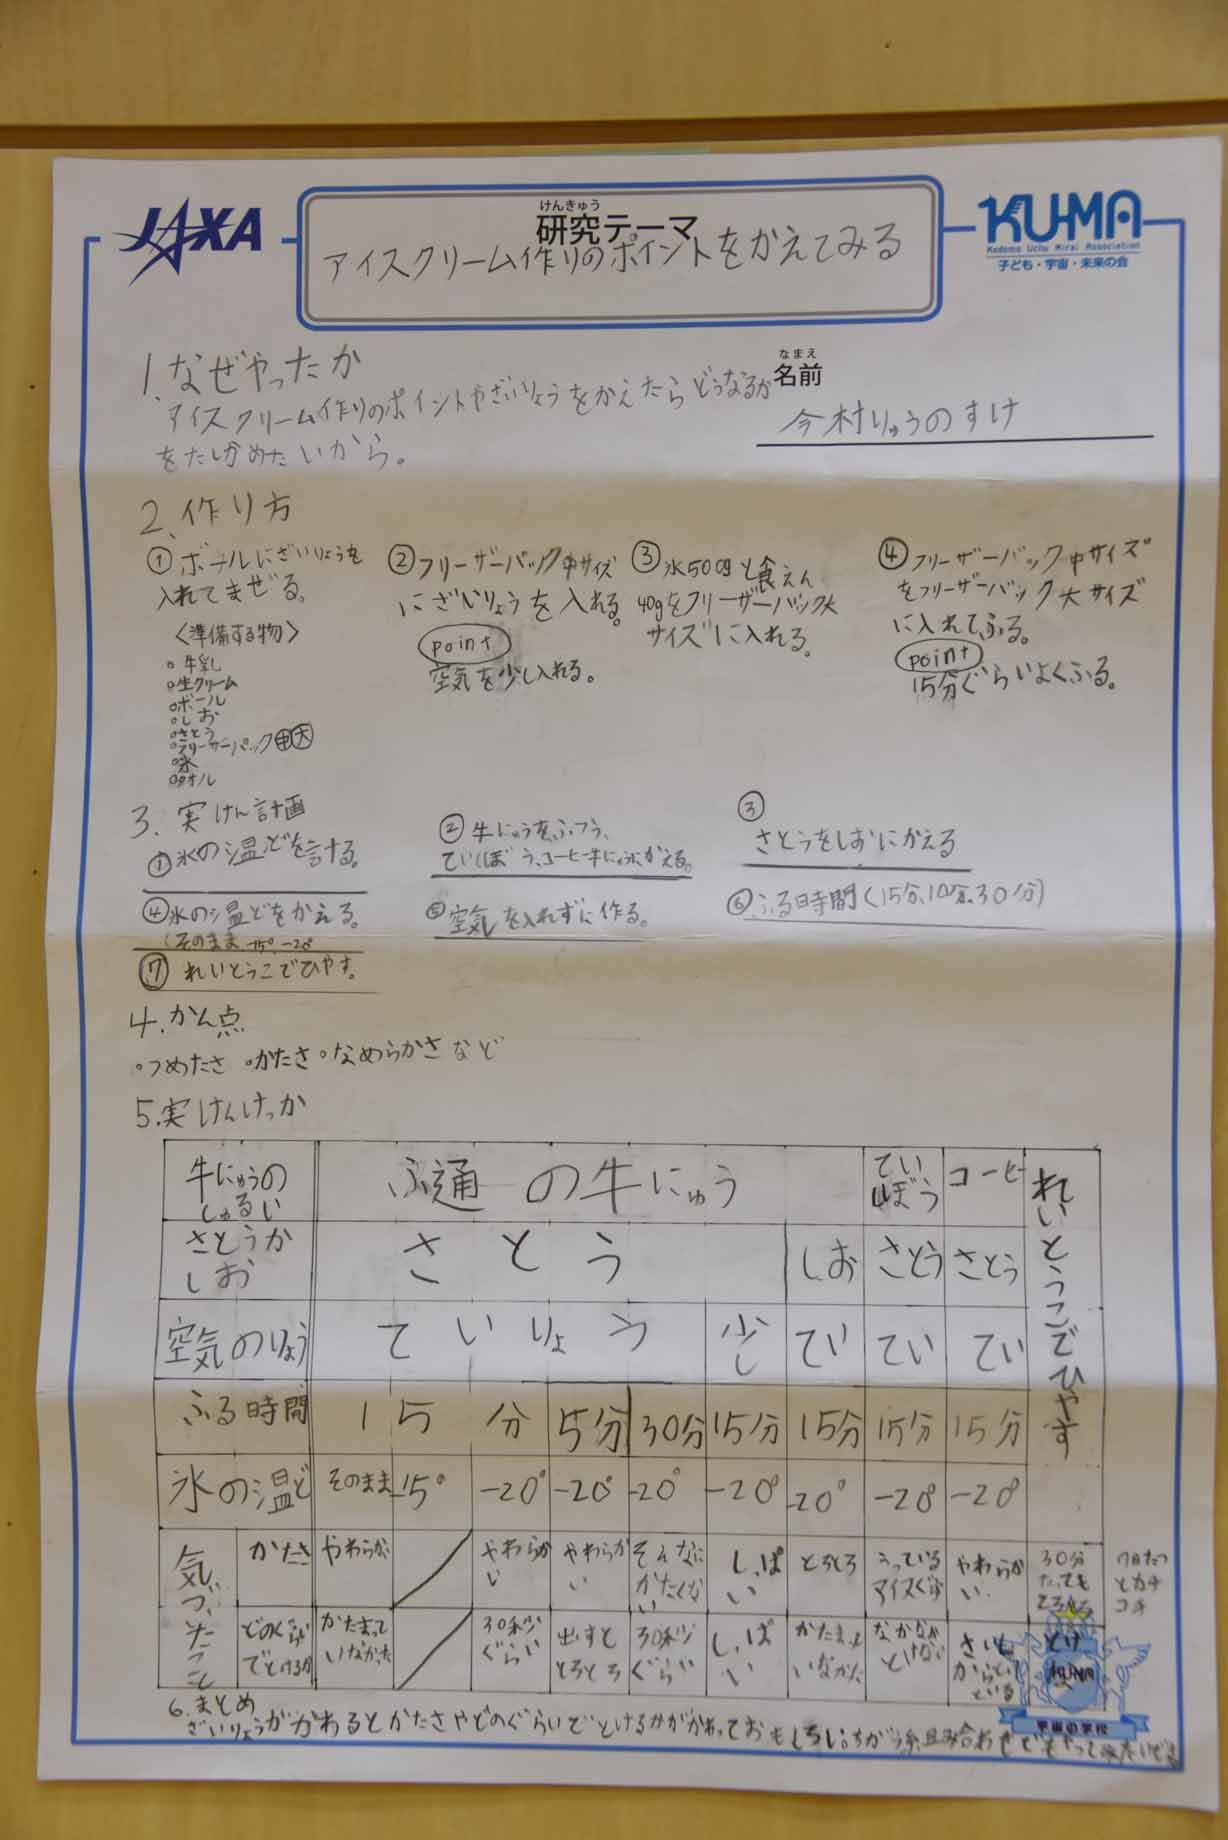 JAXA
けんきゅう
研究テーマ
アイスクリーム作りのポイントをかえてみる
KU-MA
Kodomo Uchu Mirai Association
子ども・宇宙・未来の会
1.なぜやったか
アイスクリーム作りのポイントやざいりょうをかえたらどうなるか
をたしかめたいから。
なまえ
名前
今村りゅうのすけ
2、作り方
①ボールにざいりょうを
入れてまぜる。
〈準備する物〉
○牛乳
○生クリーム
○ボール
○しお
○さとう
○フリーザーパック中大
○氷
○タオル
②フリーザーバック中サイズ
にざいりょうを入れる。
point
空気を少し入れる。
③氷500gと食えん
40gをフリーザーバック大
サイズに入れる。
④フリーザーバック中サイズ
をフリーザーバック大サイズ
に入れてふる。
point
15分ぐらいよくふる。
3、実けん計画
①氷の温どを計る。
②牛にゅうをふつう、
ていしぼう、コーヒー牛にゅうにかえる。
③
さとうをしおにかえる
④氷の温どをかえる。
(そのまま -15° -20°
⑤空気を入れずに作る。
⑥ふる時間(15分、10分、30分)
⑦れいとうこでひやす。
4.かん点
○つめたさ ○かたさ ○なめらかさなど
5.実けんけっか
牛にゅうの
しゅるい
ふ通の牛にゅう
てい
しぼう
コーヒー
れいとうこでひやす
さとうか
しお
さとう
しお
さとう
さとう
空気のりょう
ていりょう
少し
てい
てい
てい
ふる時間
15分
5分
30分
15分
15分
15分
15分
氷の温ど
そのまま
-15°
-20°
-20°
-20°
-20°
-20°
-20°
-20°
気づいたこと
かたさ
やわらかい
やわらかい
やわらかい
そんなに
かたくない
しっぱい
とろとろ
うっている
アイスぐらい
やわらかい
30分
たっても
とろとろ
1日たつ
とカチ
コチ
どのくらい
でとけるか
かたまって
いなかった
30秒
ぐらい
出すと
とろとろ
30秒
ぐらい
しっぱい
かたまって
いなかった
なかなか
とけない
さいしょ
からとけ
ている
とけ
KU-MA
宇宙の学校
6.まとめ
ざいりょうがかわるとかたさやどのぐらいでとけるかがかわっておもしろい。ちがう組み合わせでもやってみたいです